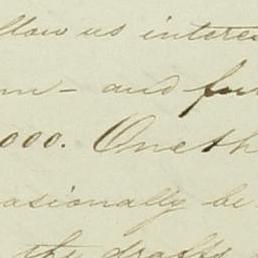 allow us intere
m – and fu
000. One th
asionally be
the drafts